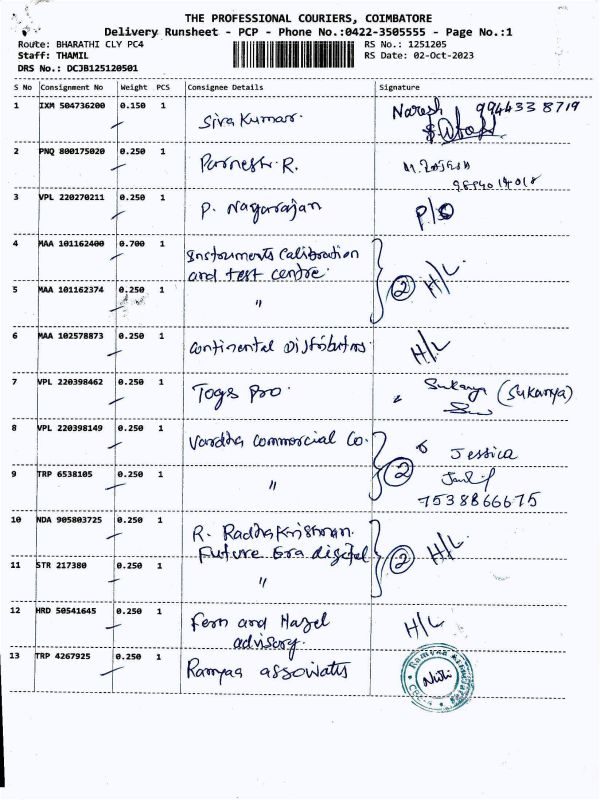 THE PROFESSIONAL COURIERS, COIMBATORE
Delivery Runsheet - PCP - Phone No.:0422-3505555 - Page No.:1
Route: BHARATHI CLY PC4 RS No.: 1251205
Staff: THAMIL RS Date: 02-Oct-2023
DRS No.: DCJB125120501
S No Consignment No Weight PCS Consignee Details Signature
1 IXM 504736200 0.150 1 Siva Kumar. Naresh 9944338719
2 PNQ 800175020 0.250 1 R.
3 VPL 220270211 0.250 1 P. Nagarajan P/O
4 MAA 101162400 0.700 1 Instruments Calibration
and test centre. 2 H/L
5 MAA 101162374 0.250 1 "
6 MAA 102578873 0.250 1 Continental Distributors H/L
7 VPL 220398462 0.250 1 Togs pro. Sukanya (Sukanya)
8 VPL 220398149 0.250 1 Vardha Commercial Co. Jessica
9 TRP 6538105 0.250 1 " 2
7538866675
10 NDA 905803725 0.250 1 R. Radhakrishnan.
Future Era digital 2 H/L
11 STR 217380 0.250 1 "
12 HRD 50541645 0.250 1 Fern and Hazel H/L
advisory.
13 TRP 4267925 0.250 1 Ramyaa associates